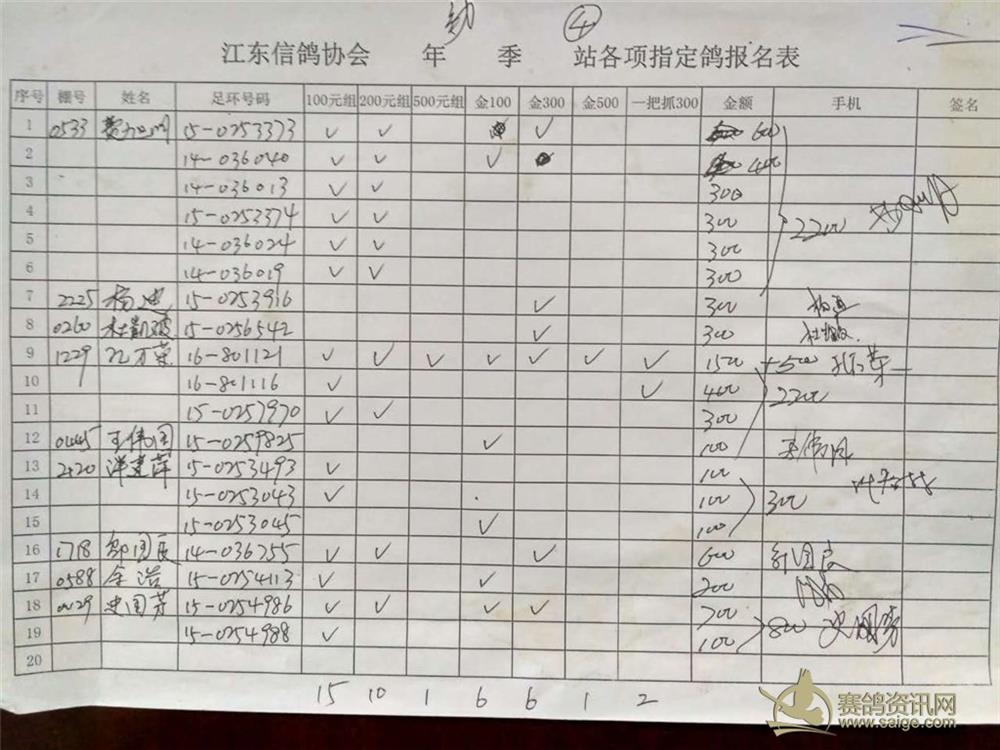 ④
江东信鸽协会 年 季 站各项指定鸽报名表
序号 棚号 姓名 足环号码 100元组 200元组 500元组 金100 金300 金500 一把抓300 金额 手机 签名
1 0533 15-0253373 ✓ ✓ ✓ 600
2 14-036040 ✓ ✓ ✓ 400
3 14-036013 ✓ ✓ 300
4 15-0253374 ✓ ✓ 300 2200
5 14-036024 ✓ ✓ 300
6 14-036019 ✓ ✓ 300
7 2225 杨迪 15-0253916 ✓ 300
8 0260 15-0256542 ✓ 300
9 1229 孔万荣 16-801121 ✓ ✓ ✓ ✓ ✓ ✓ ✓ 1500 +500
10 16-801116 ✓ ✓ 400 2200
11 15-0257970 ✓ ✓ 300
12 0445 王伟国 15-0259825 ✓ 100 王伟国
13 2420 15-0253493 ✓ 100
14 15-0253043 ✓ 100 300
15 15-0253045 ✓ 100
16 1718 邹国良 14-036255 ✓ ✓ ✓ 600 邹国良
17 0588 余浩 15-0254113 ✓ ✓ 200
18 0429 史国芳 15-0254986 ✓ ✓ ✓ ✓ 700
19 15-0254988 ✓ 100 800 史国芳
20
15 10 1 6 6 1 2
赛鸽资讯网
www.saige.com